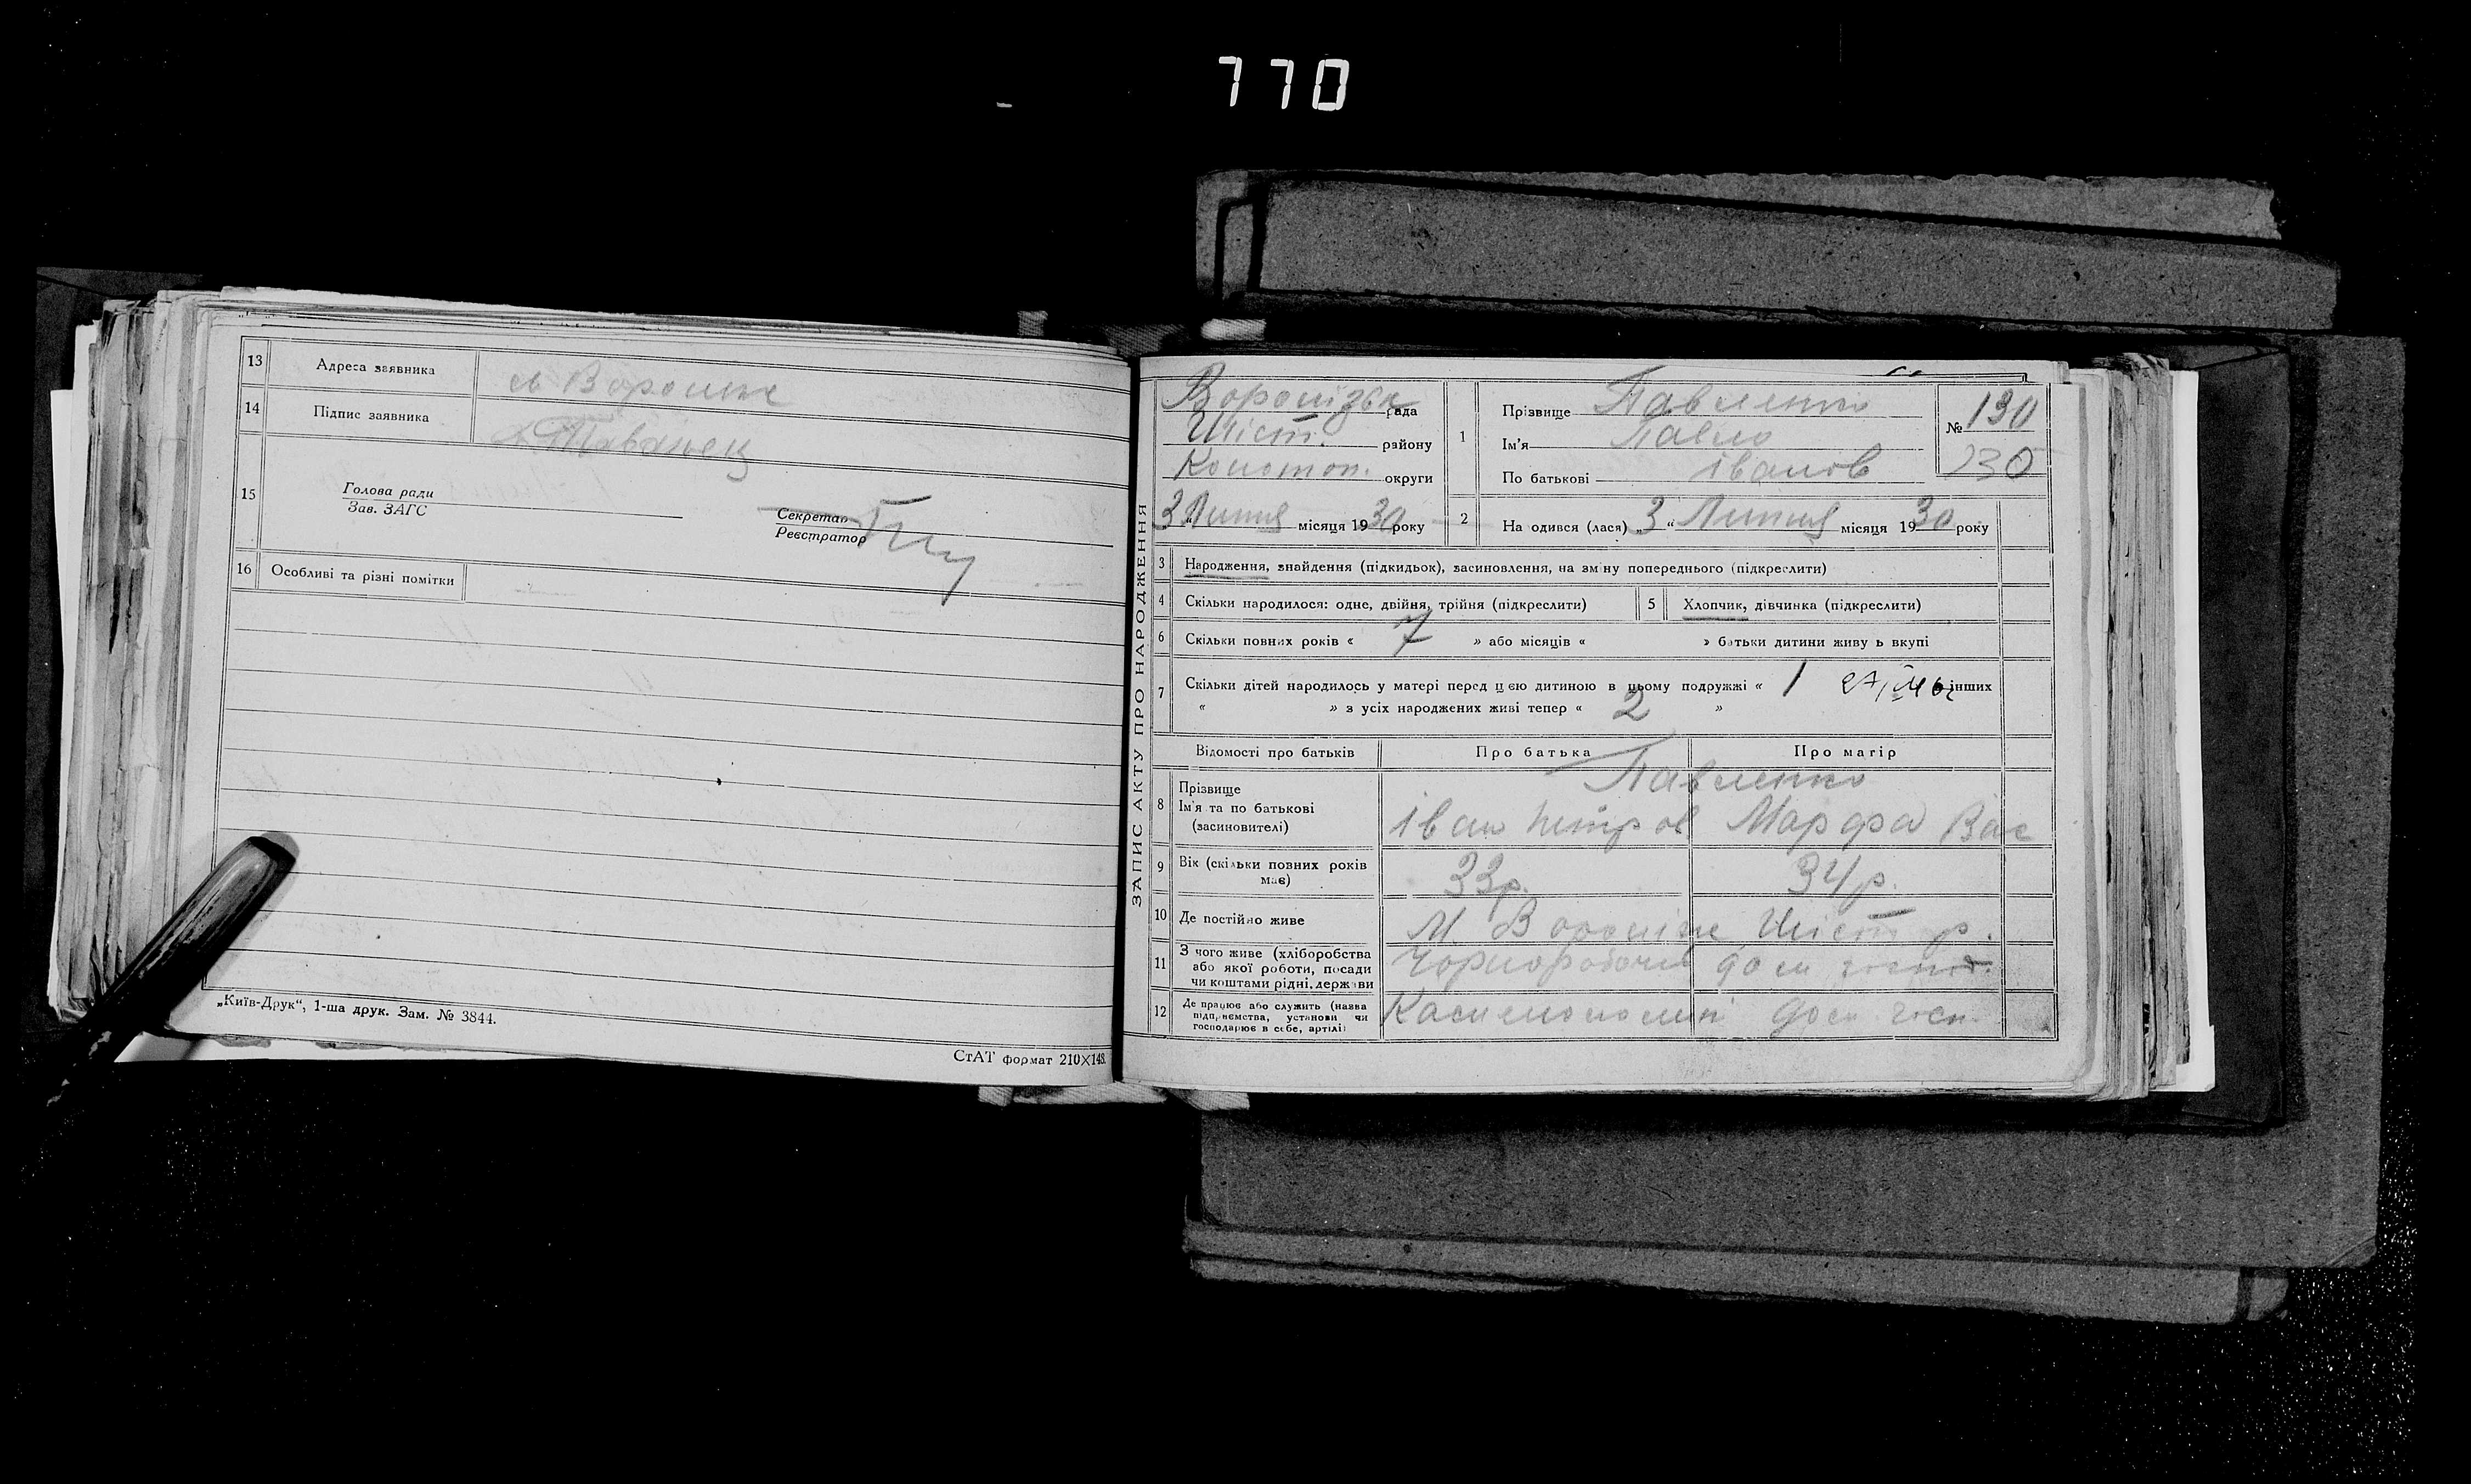 770
13 Адреса заявника м Вороніж
14 Підпис заявника
15 Голова ради
Зав. ЗАГС
Секретар
Реєстратор
16 Особливі та різні помітки
„Київ-Друк“, 1-ша друк. Зам. № 3844.
СтАТ формат 210×148.
ЗАПИС АКТУ ПРО НАРОДЖЕННЯ
Вороnізька рада
Шіст. району
Конотоп. округи
3 Липня місяця 1930 року
1 Прізвище Павленко
Ім'я Павло
По батькові Іванов
№ 130
230
2 На одився (лася) „3“ Липня місяця 1930 року
3 Народження, знайдення (підкидьок), васиновлення, на зміну попереднього (підкреслити)
4 Скільки народилося: одне, двійня, трійня (підкреслити)
5 Хлопчик, дівчинка (підкреслити)
6 Скільки повних років « 7 » або місяців « » батьки дитини живу ь вкупі
7 Скільки дітей народилось у матері перед цією дитиною в цьому подружжі « 1 інших
« » з усіх народжених живі тепер « 2 »
Відомості про батьків Про батька Про матір
8 Прізвище
Ім'я та по батькові
(засиновителі)
Павленко
Іван Петров Марфа Вас
9 Вік (скільки повних років має) 33р. 34р.
10 Де постійно живе М. Вороніж Шіст р.
11 З чого живе (хліборобства
або якої роботи, посади
чи коштами рідні, держави
Чорноробочий дом. господ.
12 Де працює або служить (назва
підприємства, установи чи
господарює в себе, артілі)
дом. госп.